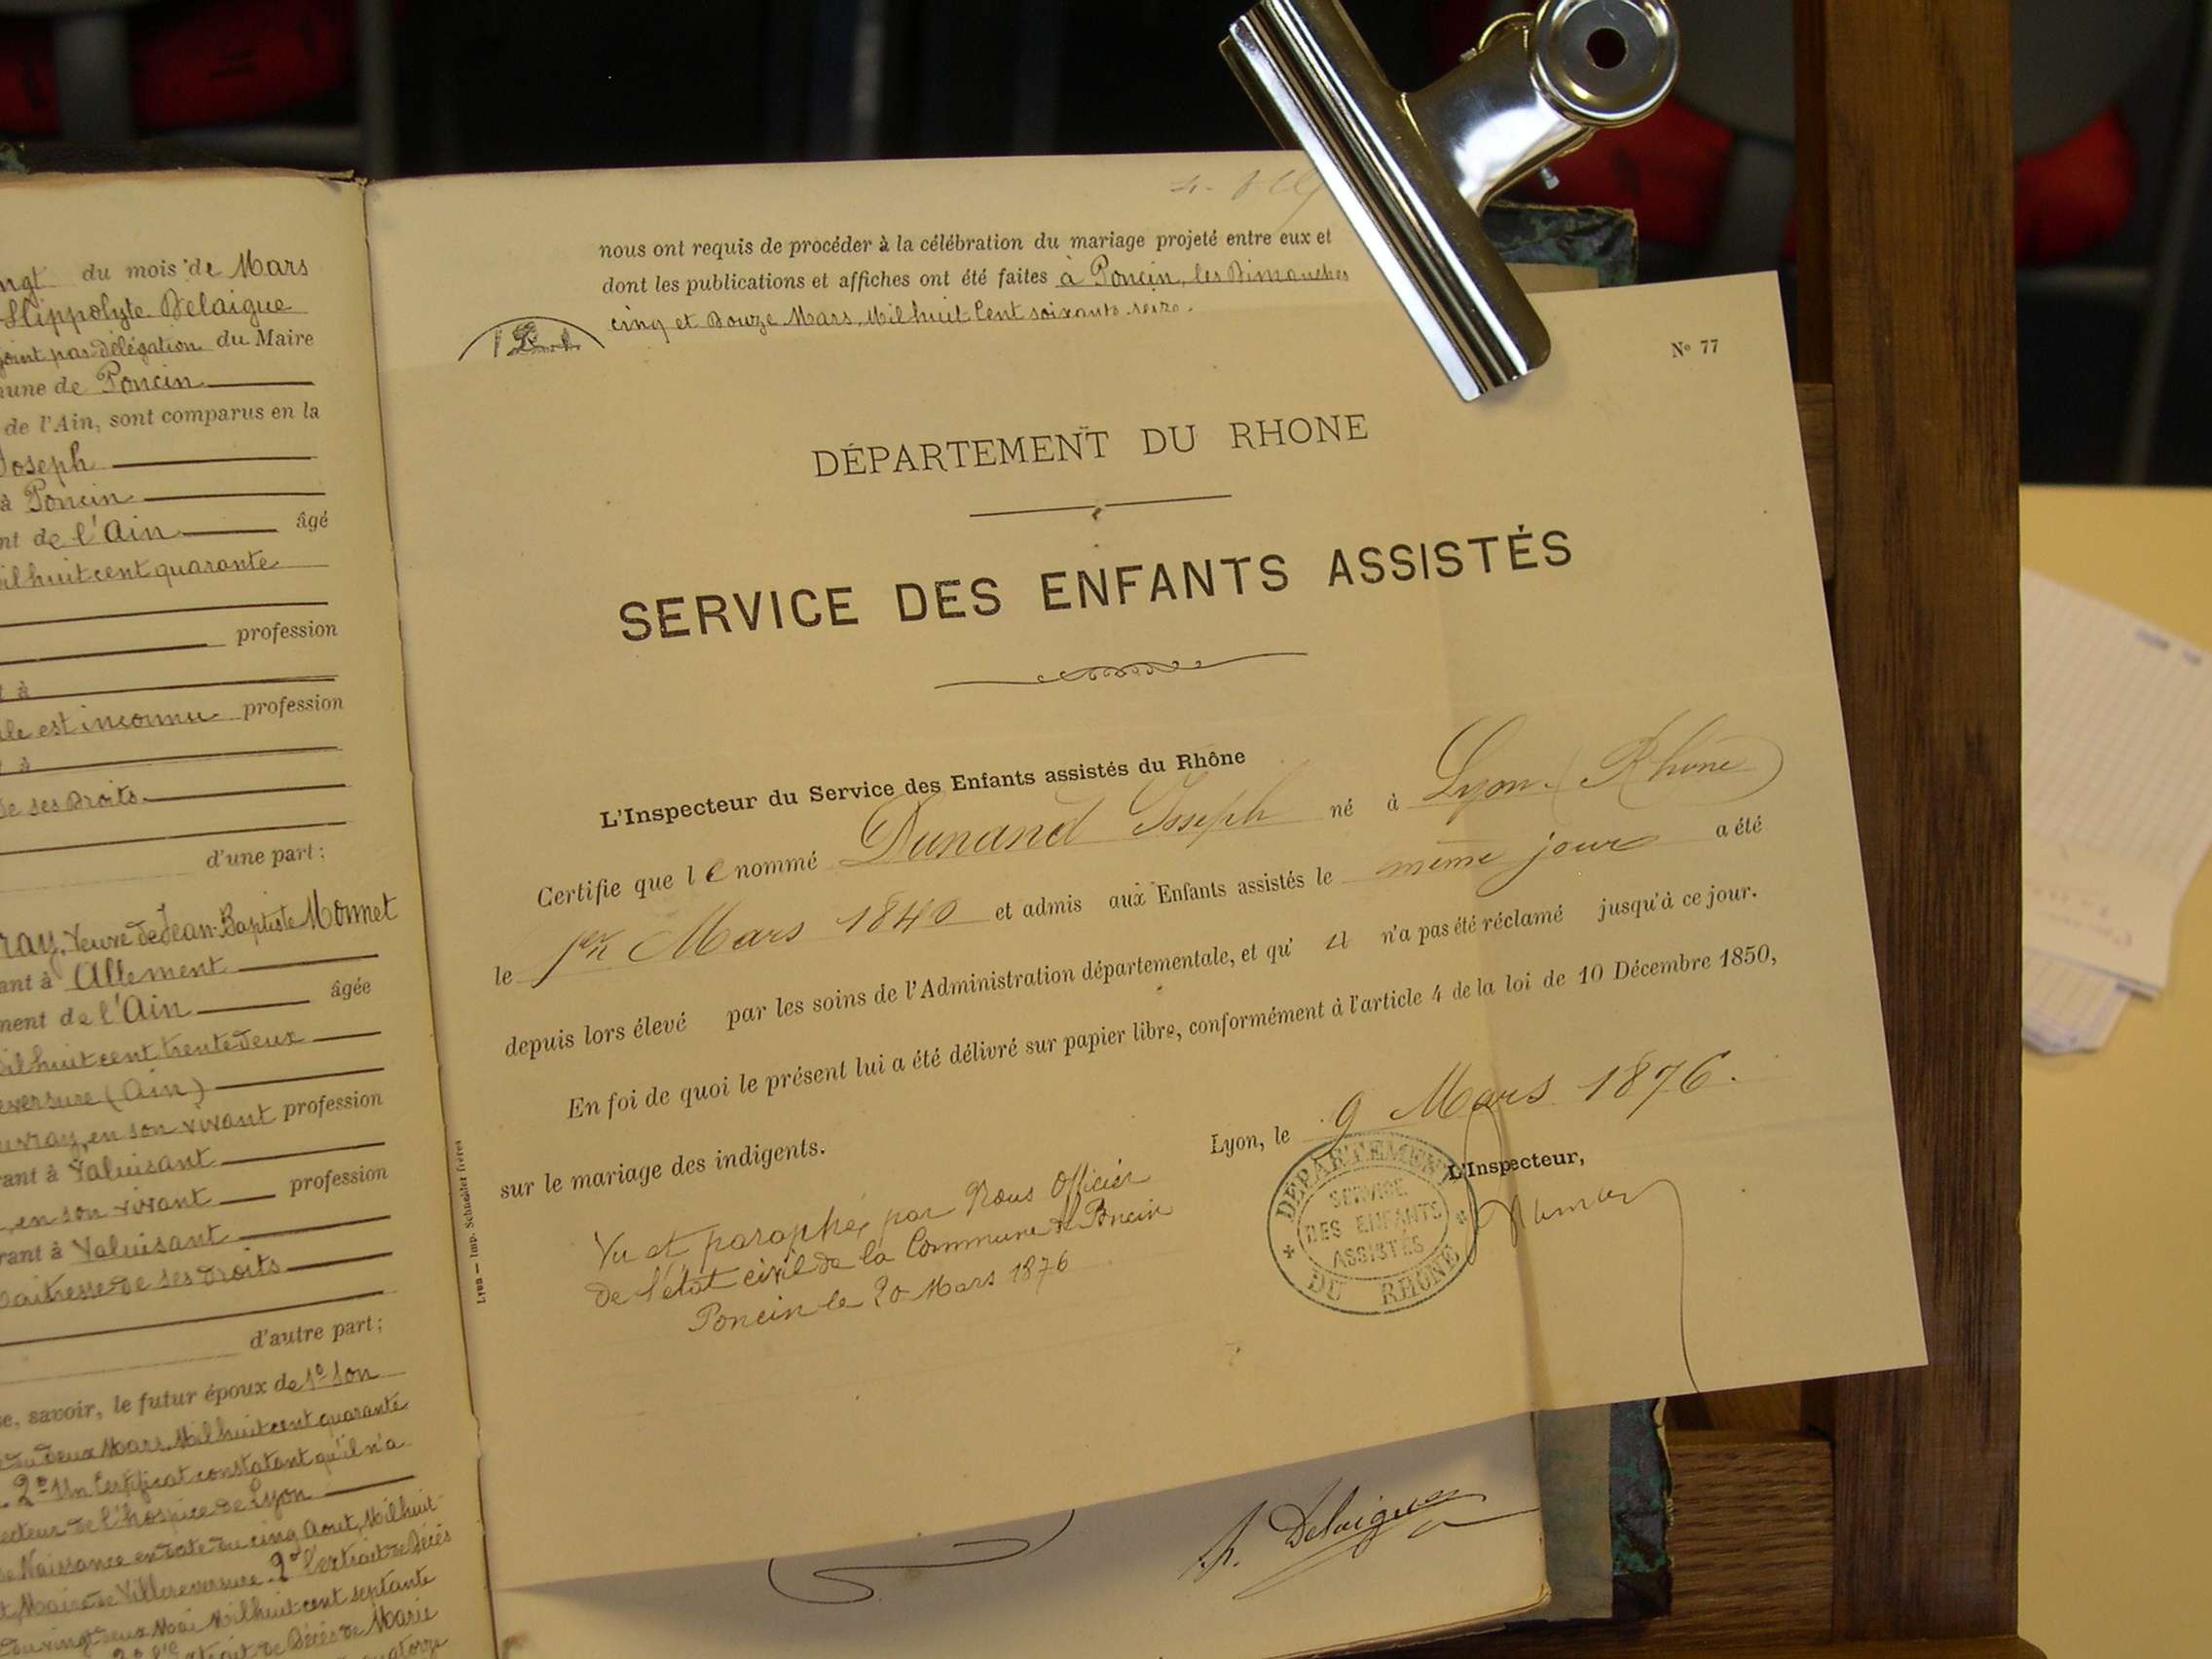 ngt du mois de Mars
Hippolyte Delaigue
joint par délégation du Maire
mune de Poncin
de l'Ain, sont comparus en la
Joseph
à Poncin
nt de l'Ain âgé
ilhuit cent quarante
profession
t à
le est inconnu profession
t à
de ses droits.
d'une part;
ray, Veuve de Jean-Baptiste Monnet
ant à Allement
ment de l'Ain âgée
ilhuit cent trente deux
eversure (Ain)
uvray, en son vivant profession
rant à Valuisant
, en son vivant profession
rant à Valuisant
aitresse de ses droits
d'autre part;
se, savoir, le futur époux de 1º son
du deux Mars Milhuit cent quarante
2º Un Certificat constatant qu'il n'a
ecteur de l'hospice de Lyon
de Naissance en date du cinq Aout, Milhuit
Maire de Villereversure. 2º l'extrait de Décès
du vingt deux Mai Milhuit cent septante
extrait de Décès de Marie
quatorze
nous ont requis de procéder à la célébration du mariage projeté entre eux et
dont les publications et affiches ont été faites à Poncin, les Dimanches
cinq et Douze Mars, Milhuit Cent soixante seize.
Nº 77
DÉPARTEMENT DU RHONE
SERVICE DES ENFANTS ASSISTÉS
L'Inspecteur du Service des Enfants assistés du Rhône
Certifie que le nommé Dunand Joseph né à Lyon (Rhône)
le 1er Mars 1840 et admis aux Enfants assistés le même jour a été
depuis lors élevé par les soins de l'Administration départementale, et qu' il n'a pas été réclamé jusqu'à ce jour.
En foi de quoi le présent lui a été délivré sur papier libre, conformément à l'article 4 de la loi de 10 Décembre 1850,
sur le mariage des indigents.
Lyon, le 9 Mars 1876.
L'Inspecteur,
Vu et paraphé, par Nous Officier
de l'état civil de la Commune de Poncin
Poncin le 20 Mars 1876
DÉPARTEMENT
SERVICE
DES ENFANTS
ASSISTÉS
DU RHÔNE
Lyon — Imp. Schneider frères
h. Delaigue